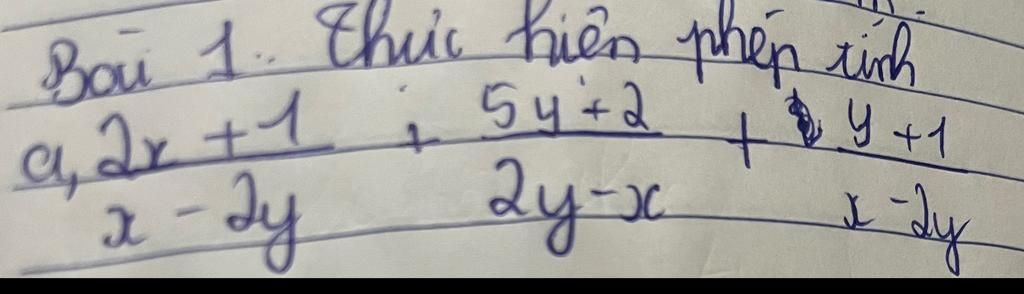 Bài 1. Thực hiện phép tính
a, 2x + 1 / x - 2y + 5y + 2 / 2y - x + y + 1 / x - 2y